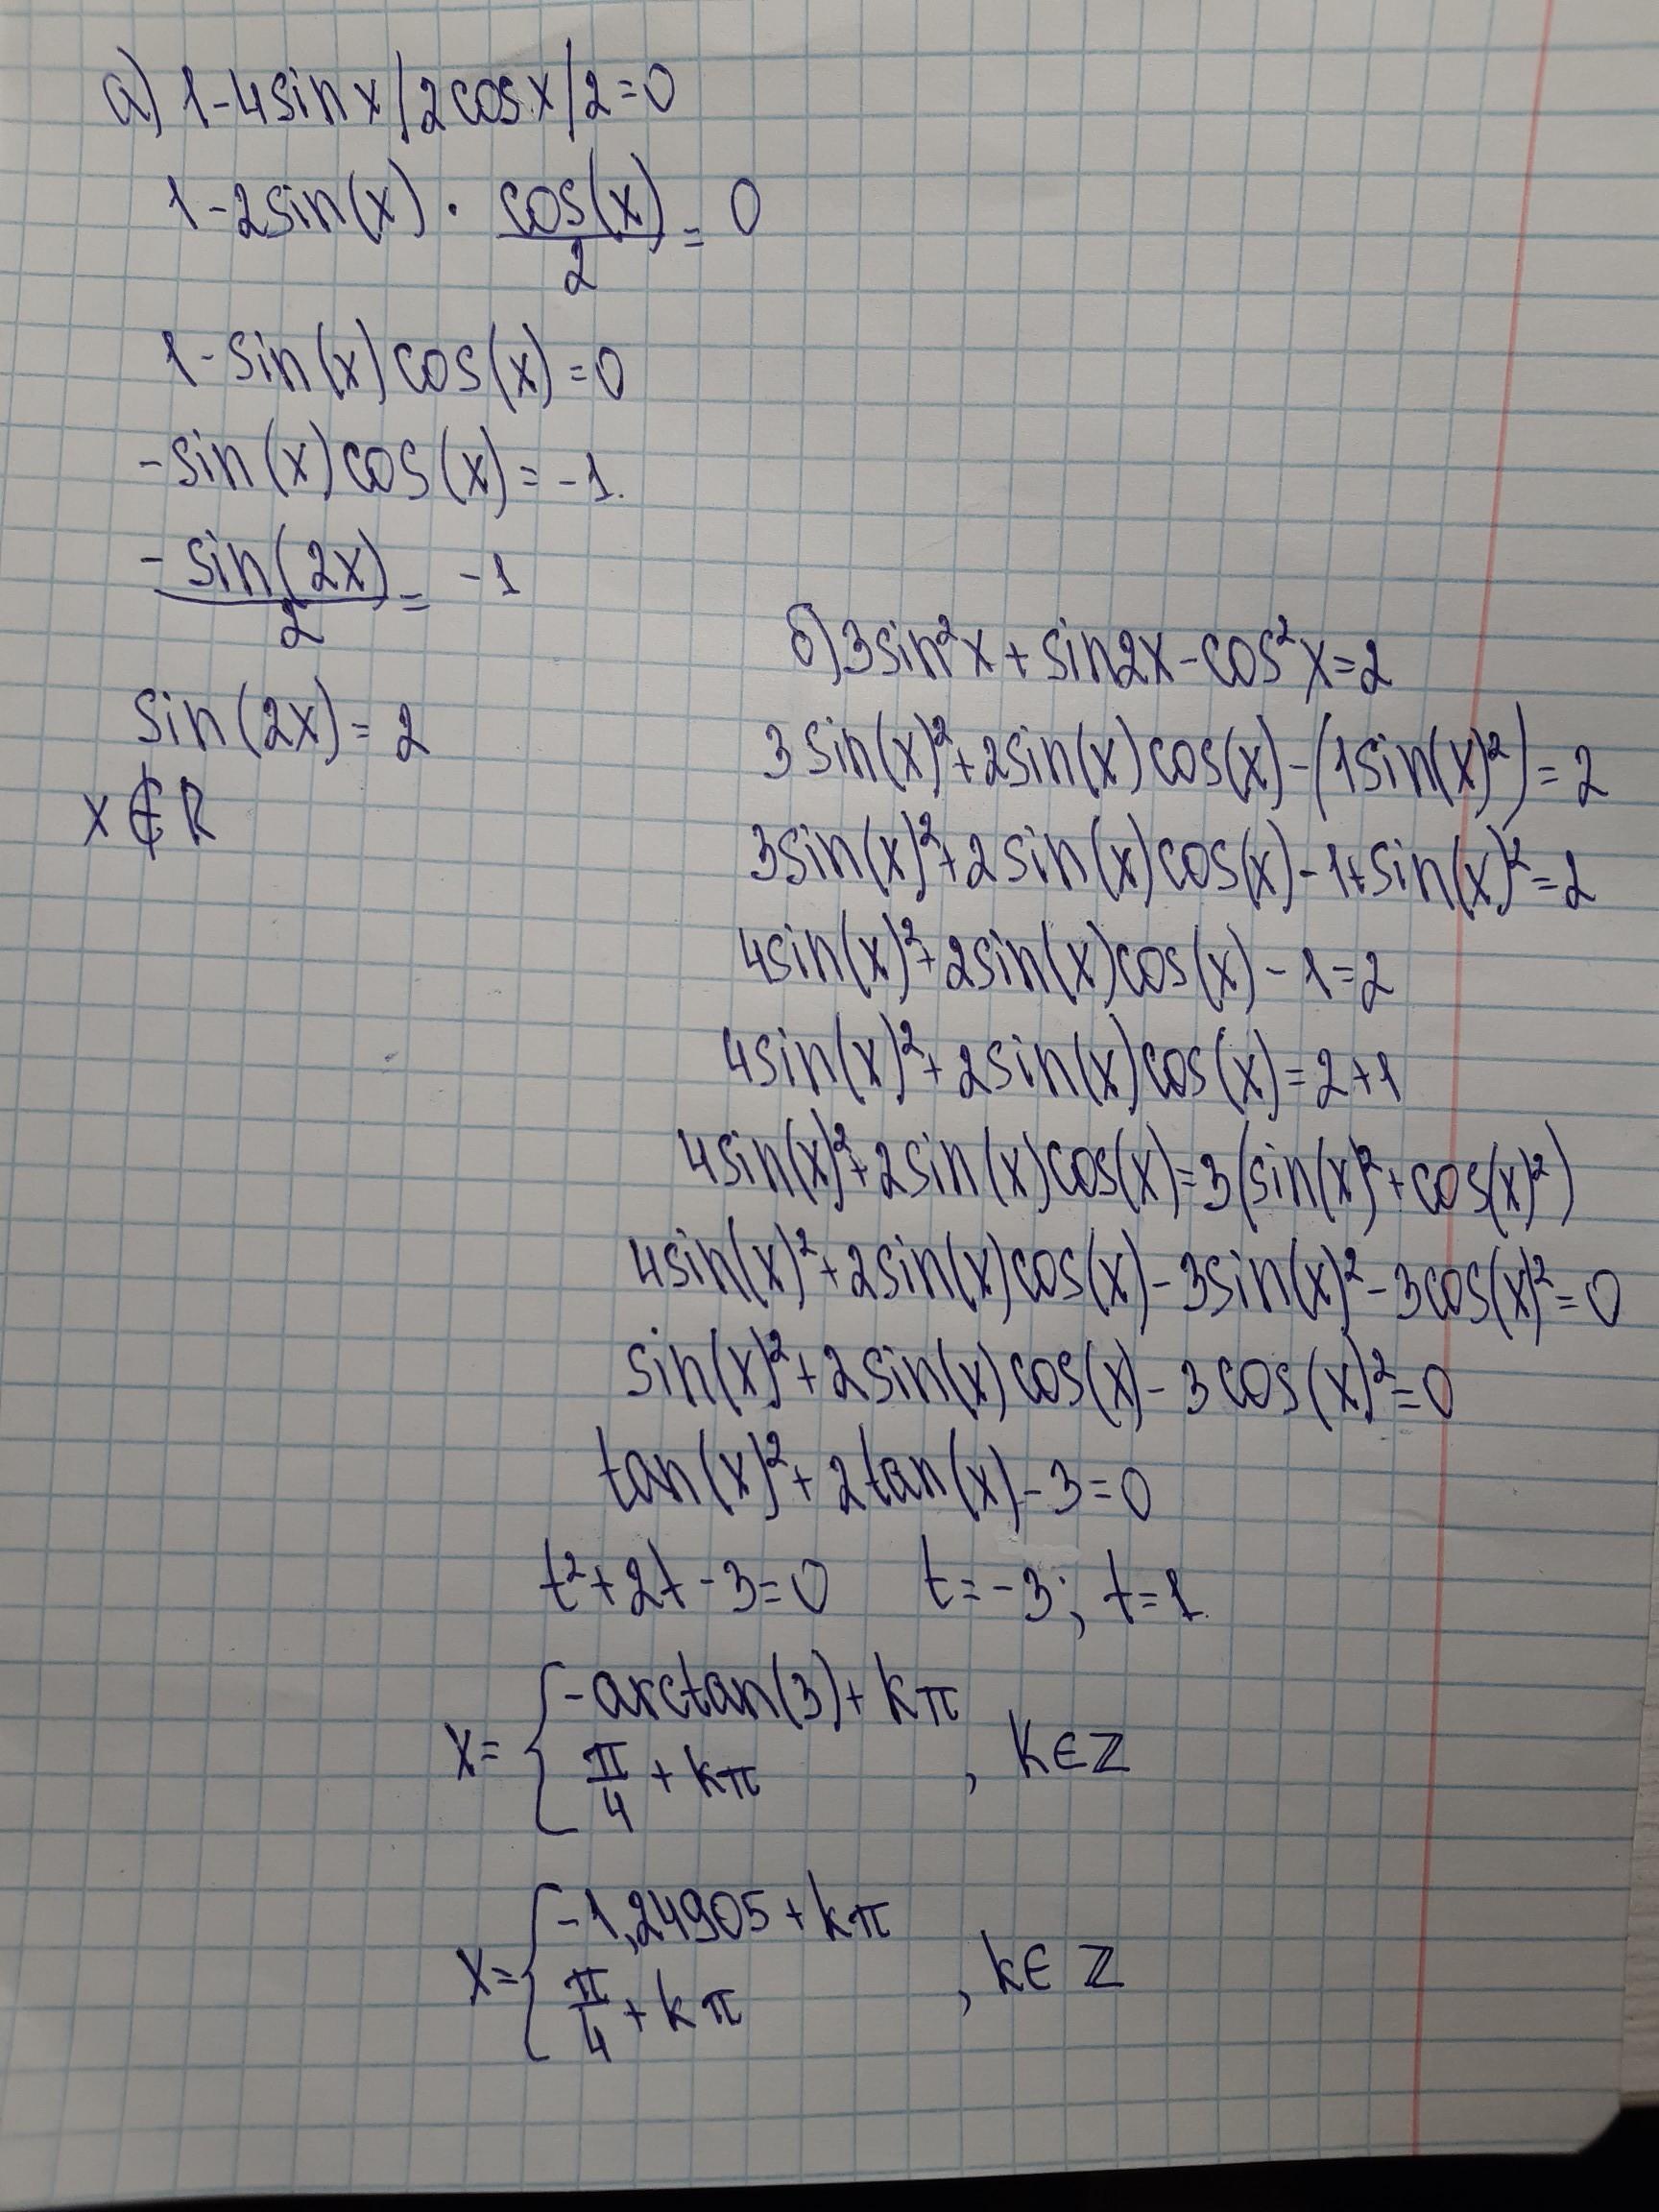 а) 1-4sin x/2cos x/2=0
1-2sin(x) · cos(x)/2 = 0
1-sin(x)cos(x)=0
-sin(x)cos(x)=-1.
-sin(2x)/2 = -1
sin(2x)=2
x∉R
б) 3sin²x+sin2x-cos²x=2
3sin(x)²+2sin(x)cos(x)-(1sin(x)²)=2
3sin(x)²+2sin(x)cos(x)-1+sin(x)²=2
4sin(x)²+2sin(x)cos(x)-1=2
4sin(x)²+2sin(x)cos(x)=2+1
4sin(x)²+2sin(x)cos(x)=3(sin(x)²+cos(x)²)
4sin(x)²+2sin(x)cos(x)-3sin(x)²-3cos(x)²=0
sin(x)²+2sin(x)cos(x)-3cos(x)²=0
tan(x)²+2tan(x)-3=0
t²+2t-3=0 t=-3; t=1.
x= { -arctan(3)+kπ
π/4 + kπ , k∈Z
x= { -1,24905+kπ
π/4 + kπ , k∈Z